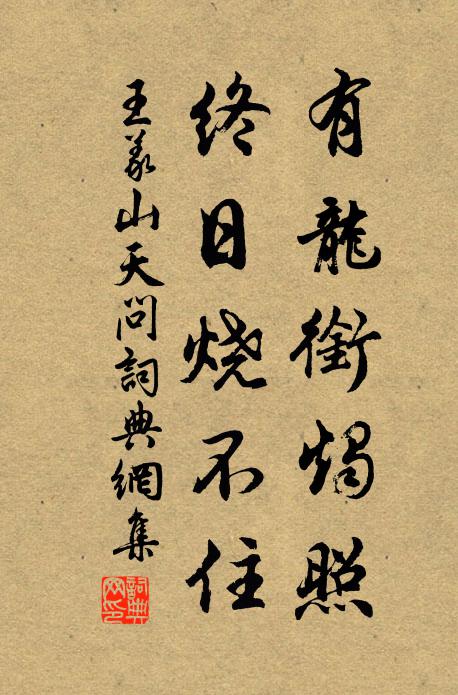 有龍銜燭照
終日烧不住
王義山天問詞典網集
詞典網印